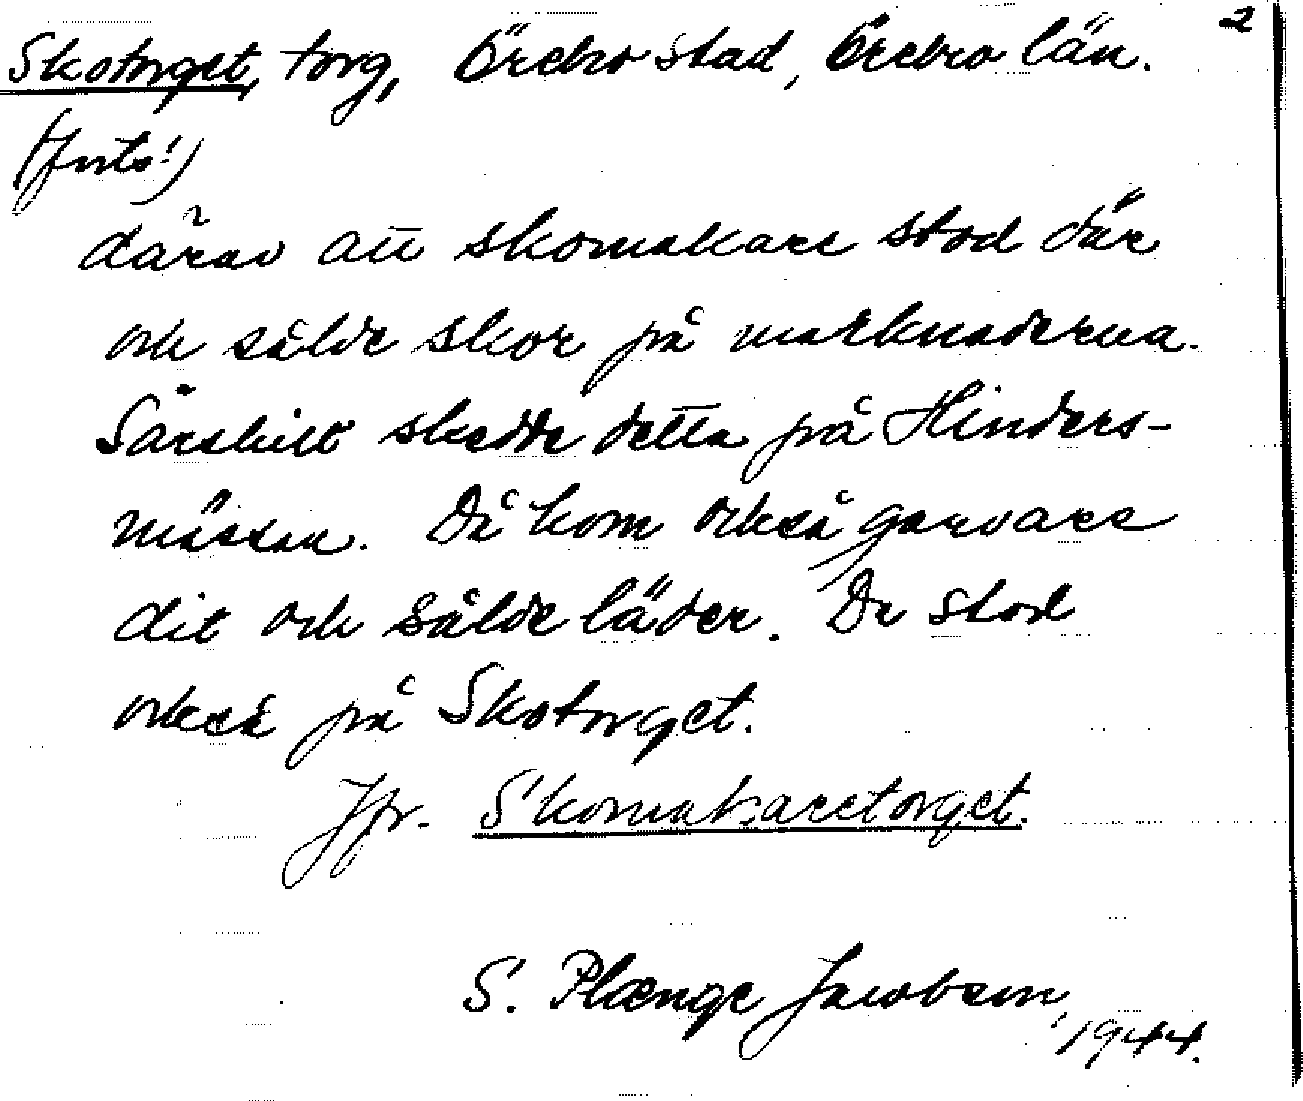 2
Skotorget, torg, Örebro stad, Örebro län.
(forts.)
därav att skomakare stod där
och sålde skor på marknaderna.
Särskilt skedde detta på Hinders-
mässan. Då kom också garvare
dit och sålde läder. De stod
också på Skotorget.
Jfr. Skomakaretorget.
S. Plænge Jacobson,
1944.